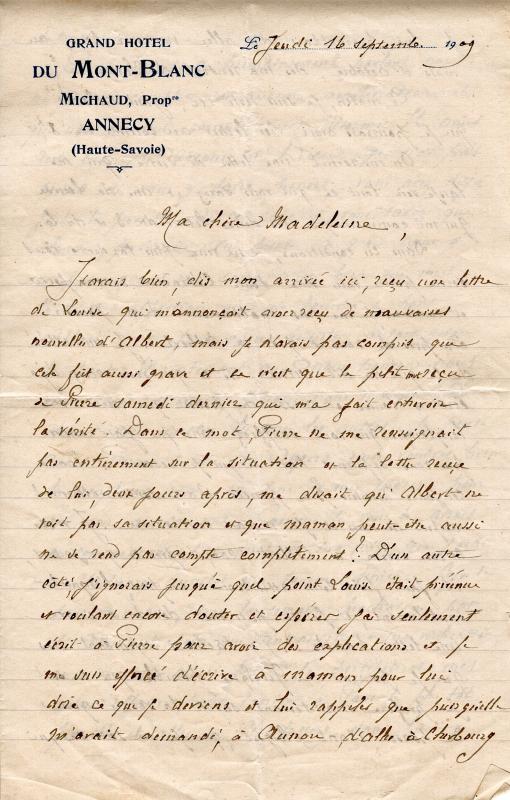 GRAND HOTEL
DU MONT-BLANC
MICHAUD, Propre
ANNECY
(Haute-Savoie)
Le Jeudi 16 septembre 1909
Ma chère Madeleine,
J'avais bien, dès mon arrivée ici, reçu une lettre
de Louise qui m'annonçait avoir reçu de mauvaises
nouvelles d'Albert, mais je n'avais pas compris que
cela fût aussi grave et ce n'est que le petit mot reçu
de Pierre samedi dernier qui m'a fait entrevoir
la vérité. Dans ce mot, Pierre ne me renseignait
pas entièrement sur la situation et la lettre reçue
de lui, deux jours après, me disait qu'Albert ne
voit pas sa situation et que maman peut-être aussi
ne se rend pas compte complètement? D'un autre
côté, j'ignorais jusqu'à quel point Louise était prévenue
et voulant encore douter et espérer j'ai seulement
écrit à Pierre pour avoir des explications et je
me suis efforcé d'écrire à maman pour lui
dire ce que je deviens et lui rappeler que puisqu'elle
m'avait demandé, à Aunou, d'aller à Cherbourg